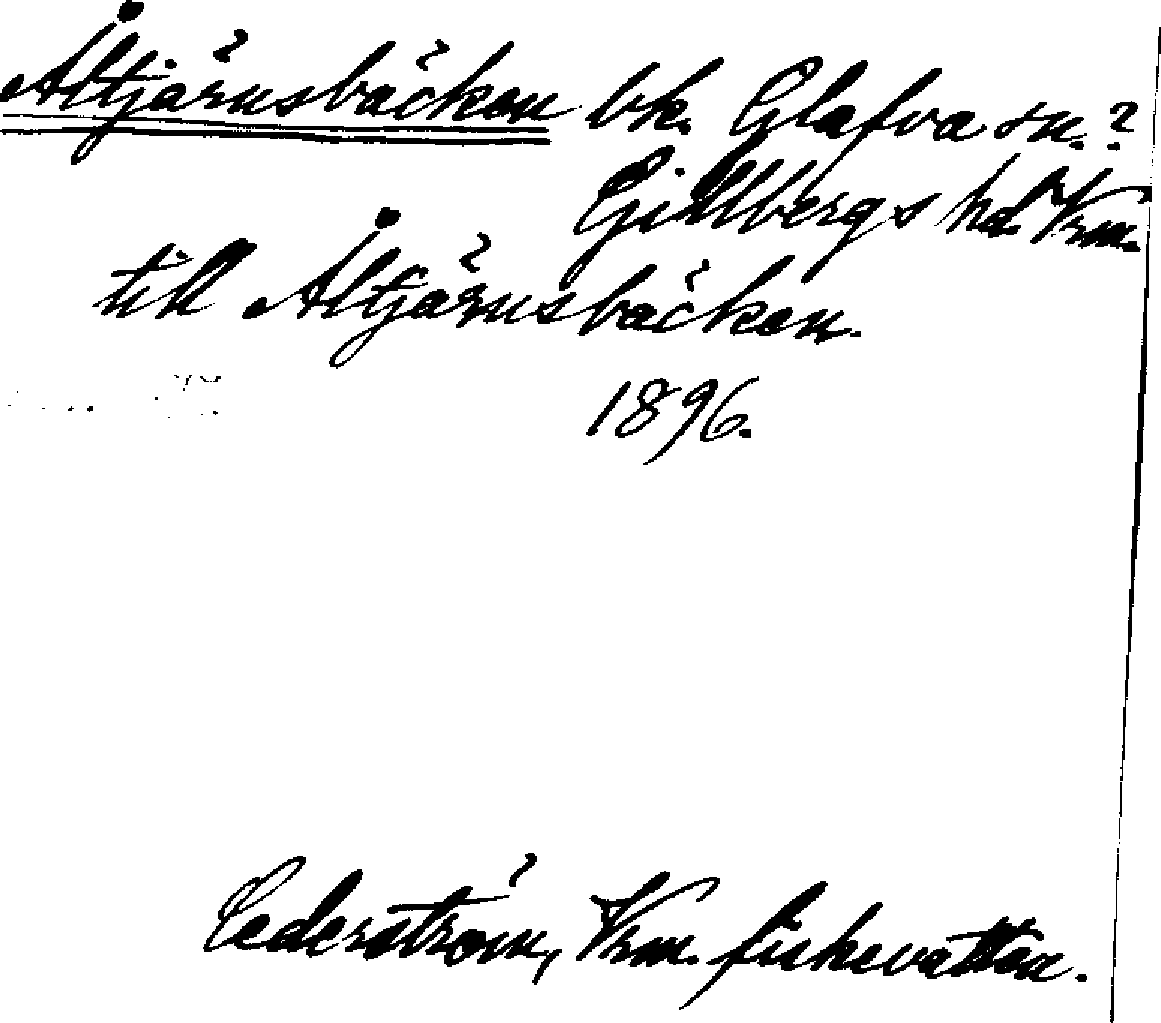 Åltjärnsbäcken bk. Glafva sn.?
Gillbergs hd. Vrm.
till Åltjärnsbäcken.
1896.
Cederström, Vrm. fiskevatten.